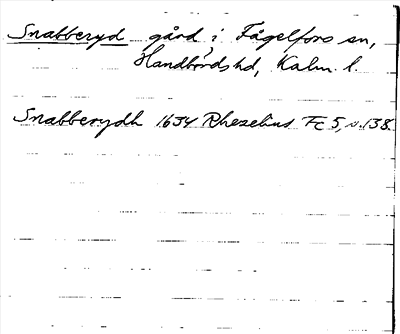 Snabberyd gård i Fågelfors sn,
Handbörds hd, Kalm. l.
Snabberydh 1634 Rhezelius Fc 5, s. 138.